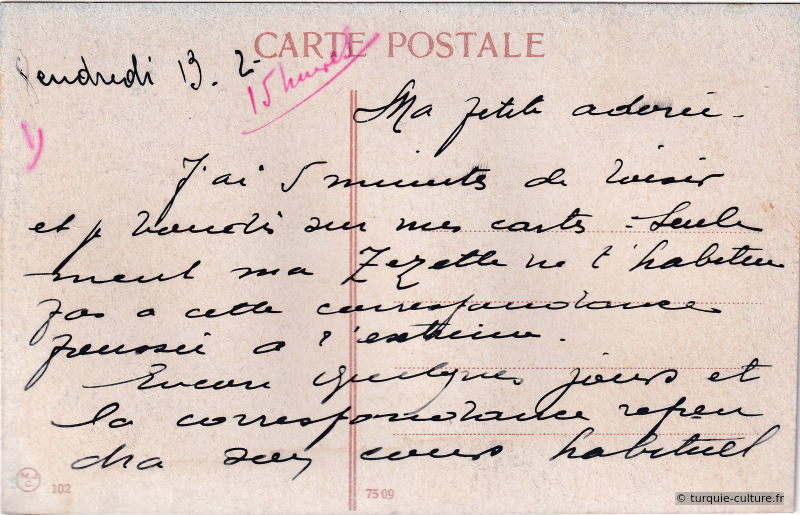 CARTE POSTALE
Vendredi 13. 2-
15 heures
1)
Ma petite adorée -
J'ai 5 minutes de loisir
et je bondis sur mes cartes - Seule
ment ma Zezette ne t'habitue
pas a cette correspondance
poussée a l'extrême.
Encore quelques jours et
la correspondance repren
dra son cours habituel
102
7509
© turquie-culture.fr